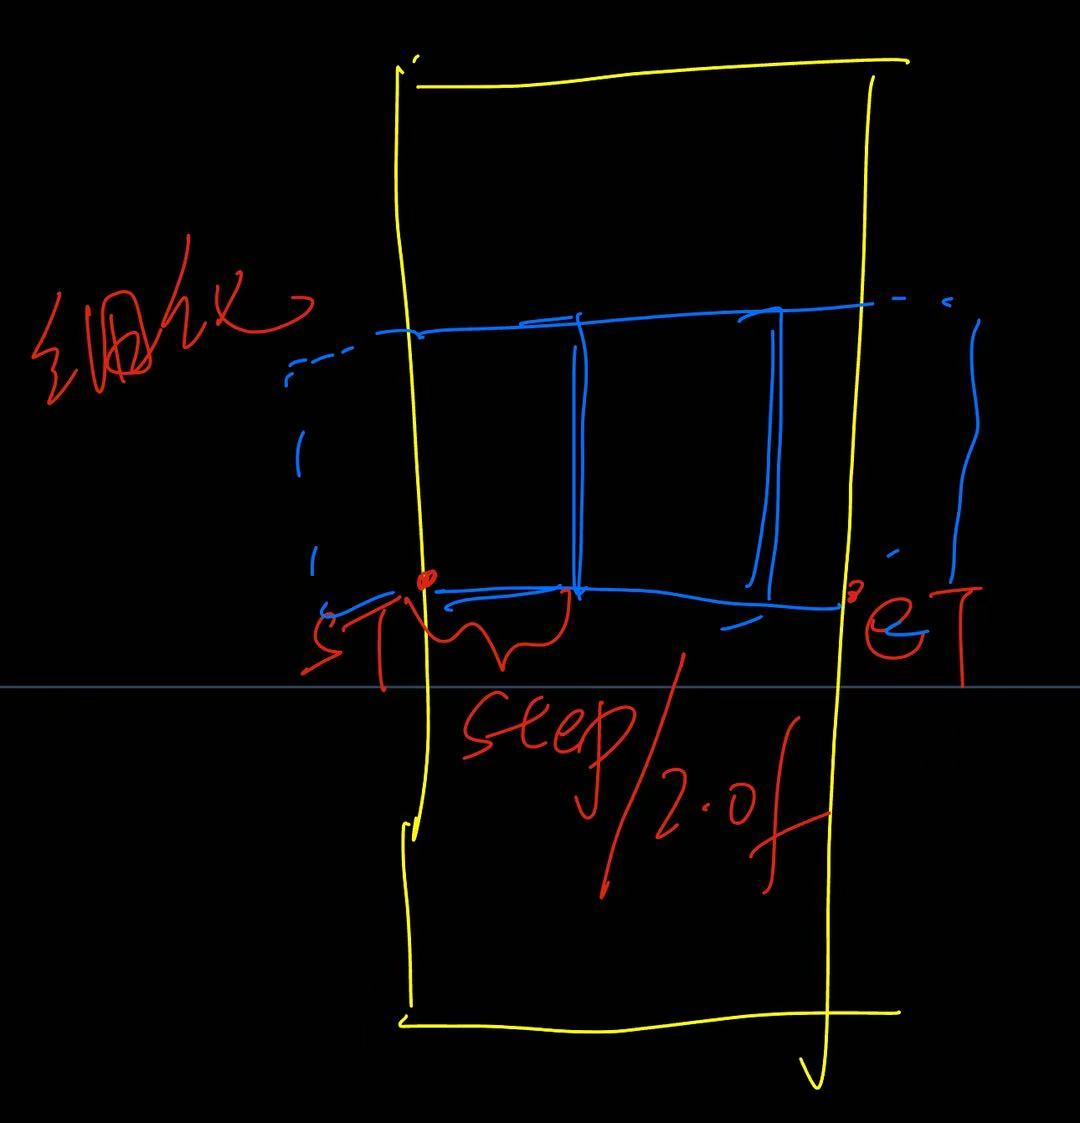 细化
ST
eT
step/2.0f